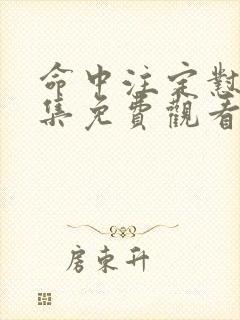 命中注定懟
集免費觀看
房東升